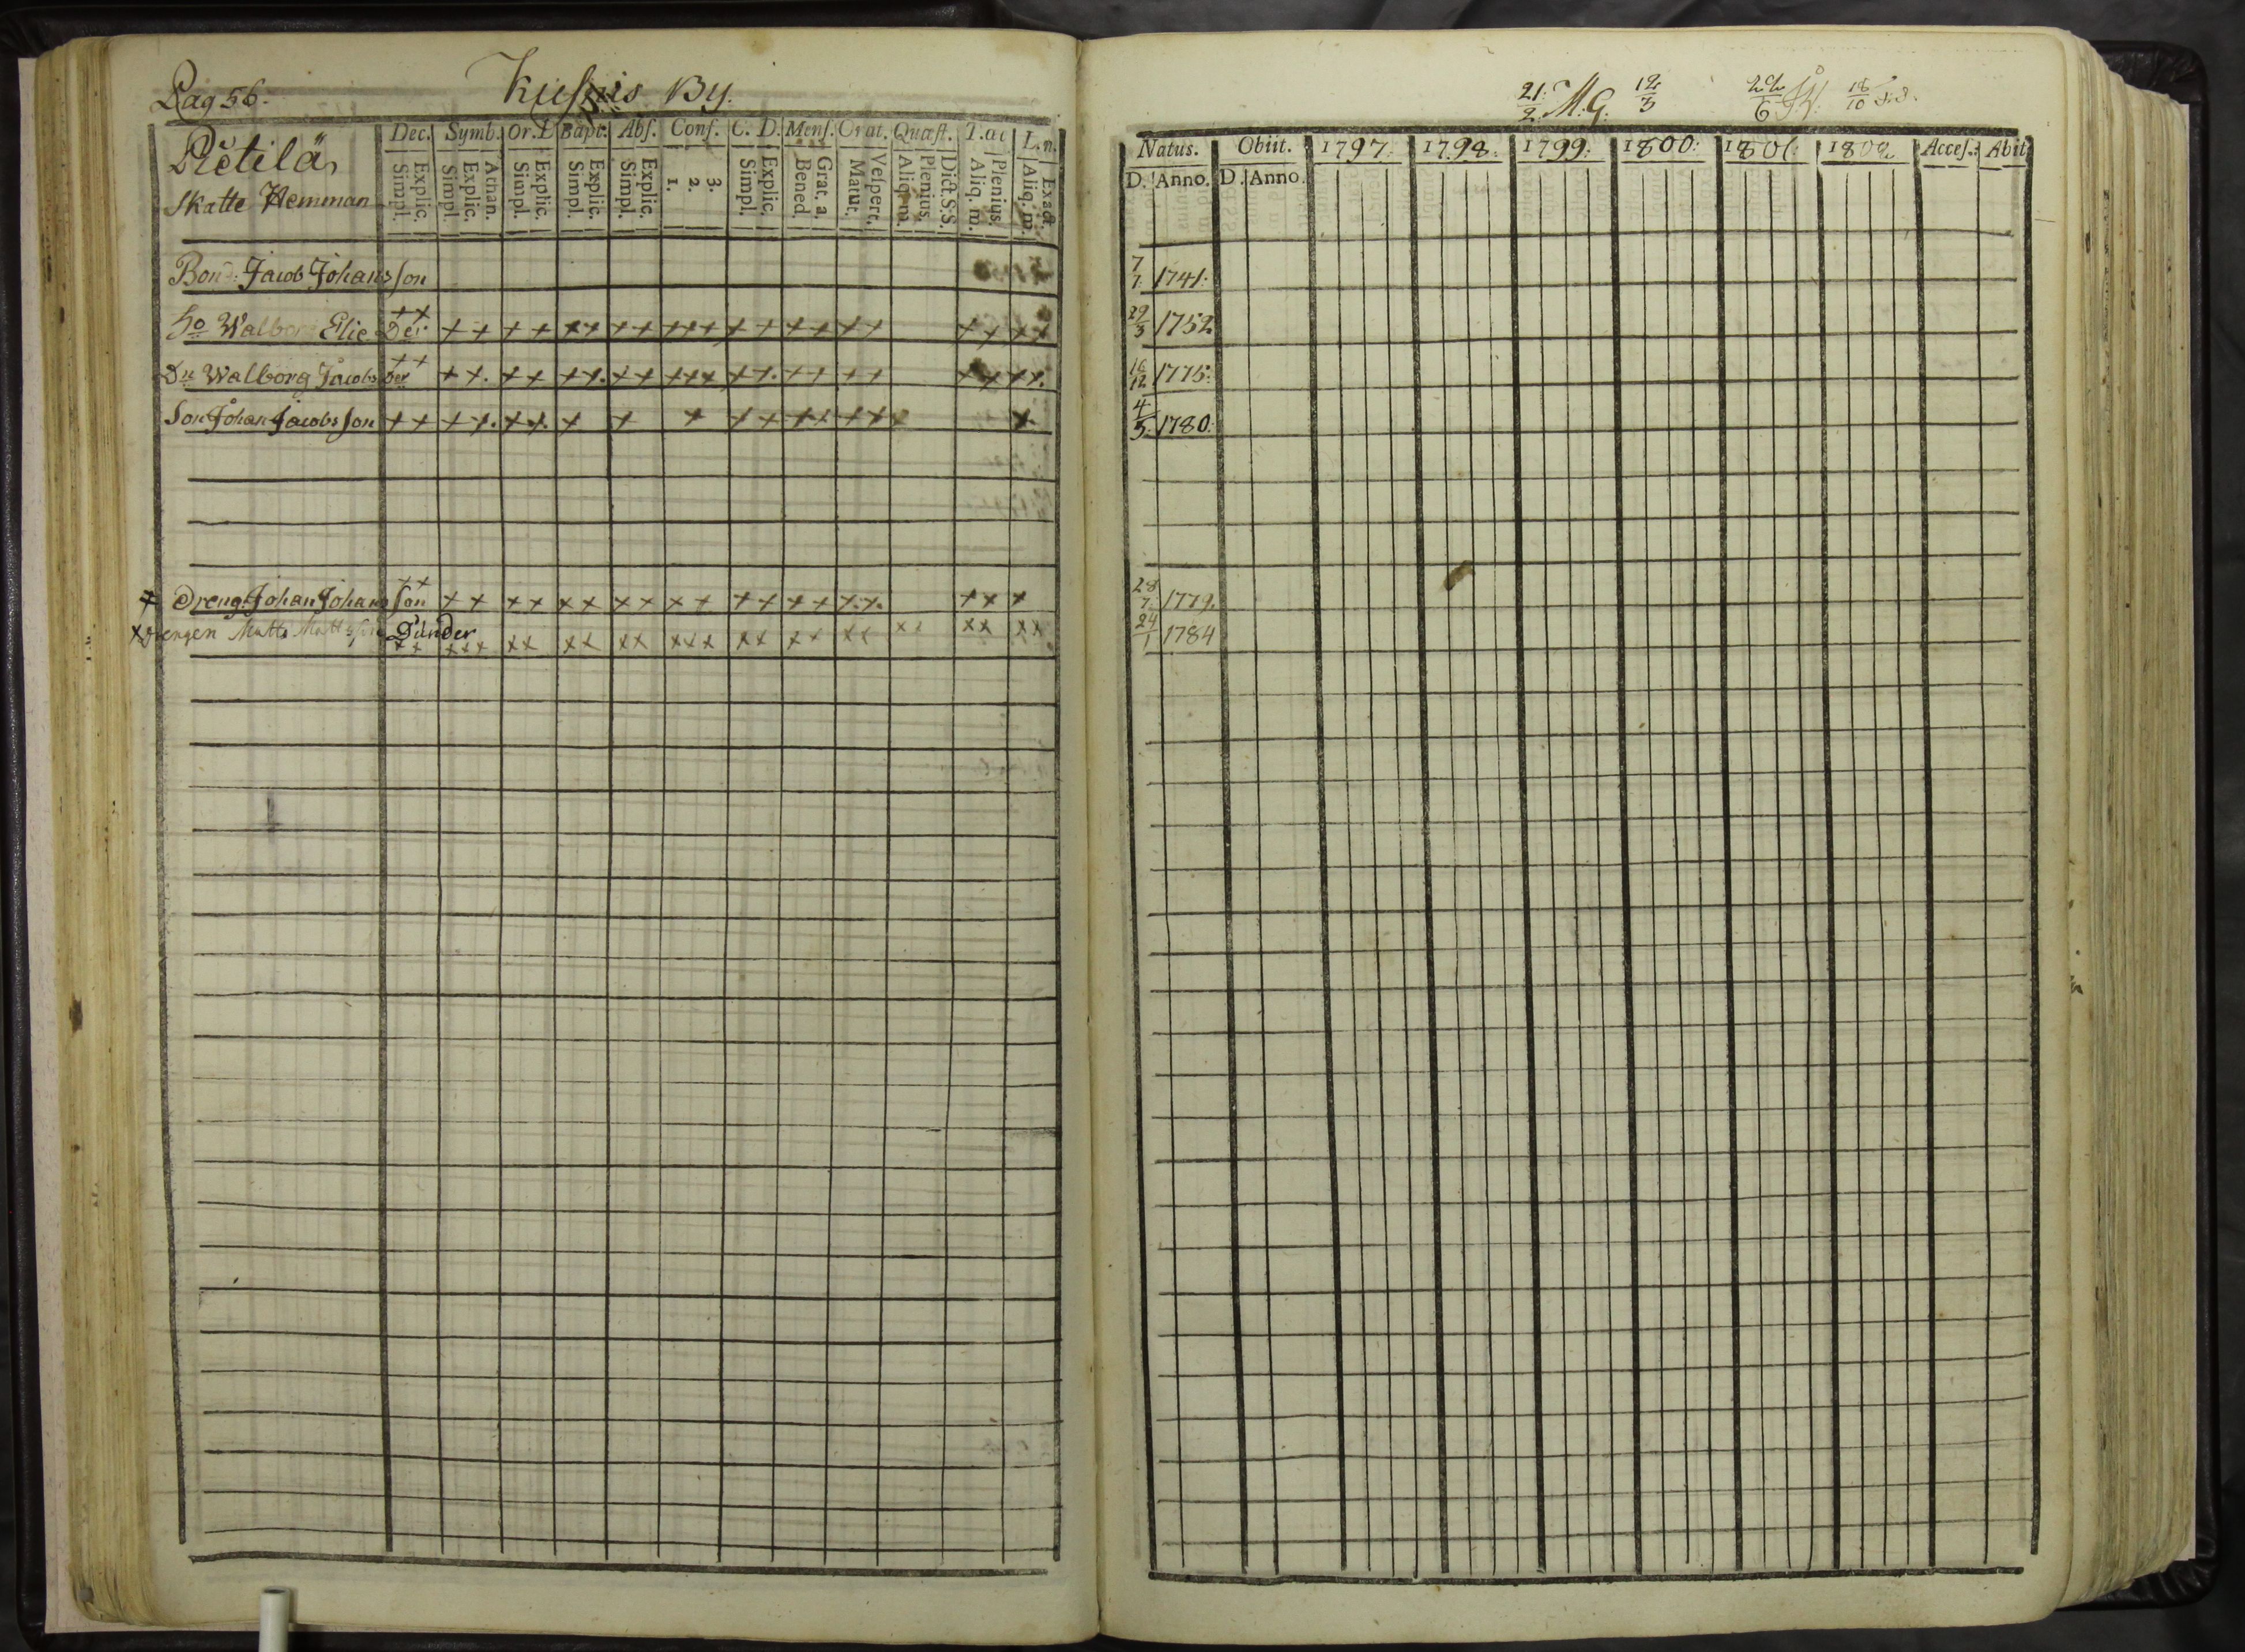 Pag 56. By.
Dec. Symb. Or. D Bapt. Abs. Conf. C. D. Mens. Orat. Quæst. T. œc L. n.
Pietilä
Skatte Hemman
Simpl. Explic. Simpl. Explic. Athan. Simpl. Explic. Simpl. Explic. Simpl. Explic. 1. 2. 3. Simpl. Explic. Bened. Grat. a. Matut. Vespert. Aliq. m. Plenius. Dict. S. S. Aliq. m. Plenius. Aliq. m. Exact.
Bond: Jacob Johansson
++
Ho Walborg Elie Der ++ ++ ++ ++ +++ ++ ++ ++ ++ ++
++
Dr Walborg Jacobs Der ++. ++ ++. ++ +++ ++. ++ ++ ++ ++.
Son Johan Jacobsson ++ ++. ++. + + + ++ ++ +++ +.
++
+ Dreng. Johan Johansson ++ ++ ++ ++ ++ ++ ++ +.+. ++ +
x Drengen Matts Mattsson Dunder xx xx xx
xx xxx xx xx xx xxx xx xx xx
21/2. M. G. 12/3 22/6 18/10
Natus. Obiit. 1797. 1798. 1799: 1800: 1801: 1802 Acces. Abit.
D. Anno. D. Anno.
7/7. 1741.
29/3 1752
16/12 1775:
4/5. 1780.
28/7. 1779.
24/1 1784